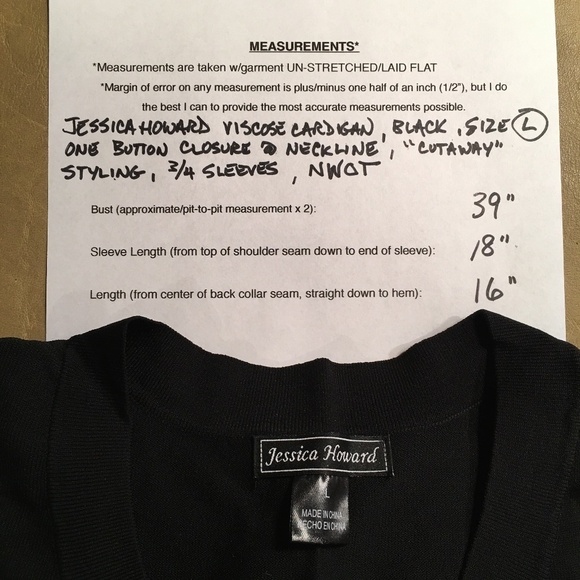 MEASUREMENTS*
*Measurements are taken w/garment UN-STRETCHED/LAID FLAT
*Margin of error on any measurement is plus/minus one half of an inch (1/2"), but I do
the best I can to provide the most accurate measurements possible.
JESSICA HOWARD VISCOSE CARDIGAN, BLACK, SIZE L
ONE BUTTON CLOSURE @ NECKLINE, "CUTAWAY"
STYLING, 3/4 SLEEVES, NWOT
Bust (approximate/pit-to-pit measurement x 2): 39"
Sleeve Length (from top of shoulder seam down to end of sleeve): 18"
Length (from center of back collar seam, straight down to hem): 16"
Jessica Howard
L
MADE IN CHINA
HECHO EN CHINA